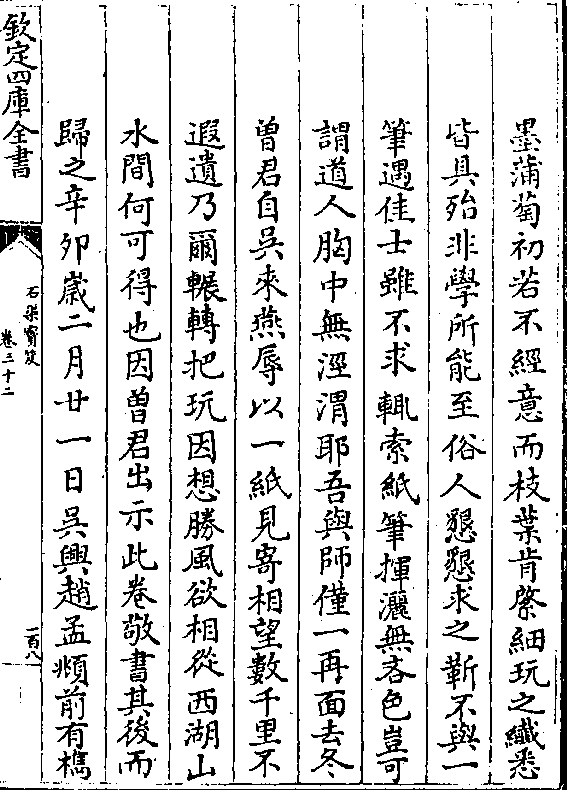 墨蒲萄初若不經意而枝葉肯綮細玩之纎悉
皆具殆非學所能至俗人懇懇求之靳不與一
筆遇佳士雖不求輒索紙筆揮灑無吝色豈可
謂道人胸中無涇渭耶吾與師僅一再面去冬
曽君自呉來燕辱以一紙見寄相望數千里不
遐遺乃爾輾轉把玩因想勝風欲相從西湖山
水間何可得也因曽君出示此卷敬書其後而
歸之辛夘嵗二月廿一日呉興趙孟頫前有檇
欽定四庫全書
石渠寶笈
卷三十二
一百八